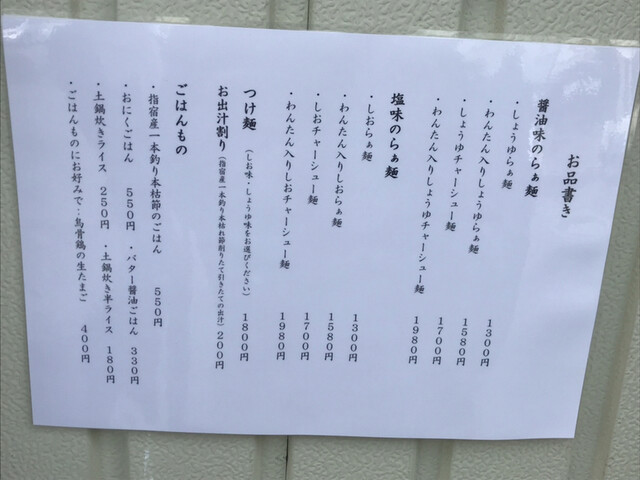 お品書き
醤油味のらぁ麺
・しょうゆらぁ麺 1300円
・わんたん入りしょうゆらぁ麺 1580円
・しょうゆチャーシュー麺 1700円
・わんたん入りしょうゆチャーシュー麺 1980円
塩味のらぁ麺
・しおらぁ麺 1300円
・わんたん入りしおらぁ麺 1580円
・しおチャーシュー麺 1700円
・わんたん入りしおチャーシュー麺 1980円
つけ麺 （しお味・しょうゆ味をお選びください） 1800円
お出汁割り（指宿産一本釣り本枯れ節削りたて引きたての出汁）200円
ごはんもの
・指宿産一本釣り本枯節のごはん 550円
・おにくごはん 550円 ・バター醤油ごはん 330円
・土鍋炊きライス 250円 ・土鍋炊き半ライス 180円
・ごはんものにお好みで…烏骨鶏の生たまご 400円